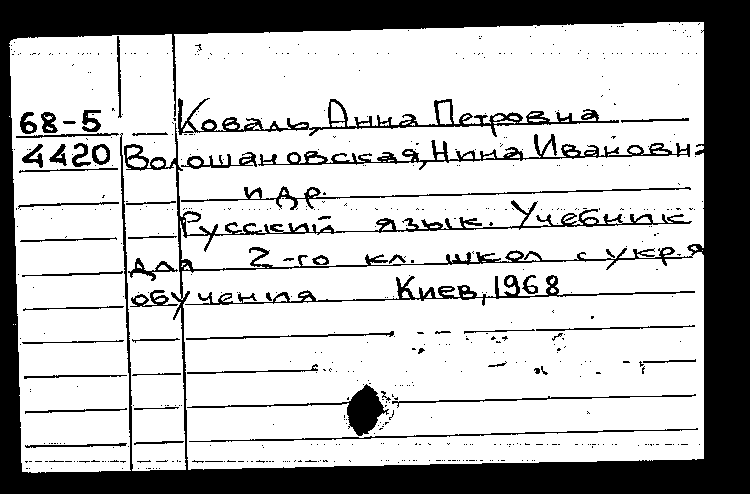 68-5 Коваль, Анна Петровна
4420 Волошановская, Нина Ивановна
и др.
Русский язык. Учебник
для 2-го кл. школ с укр. я
обучения Киев, 1968